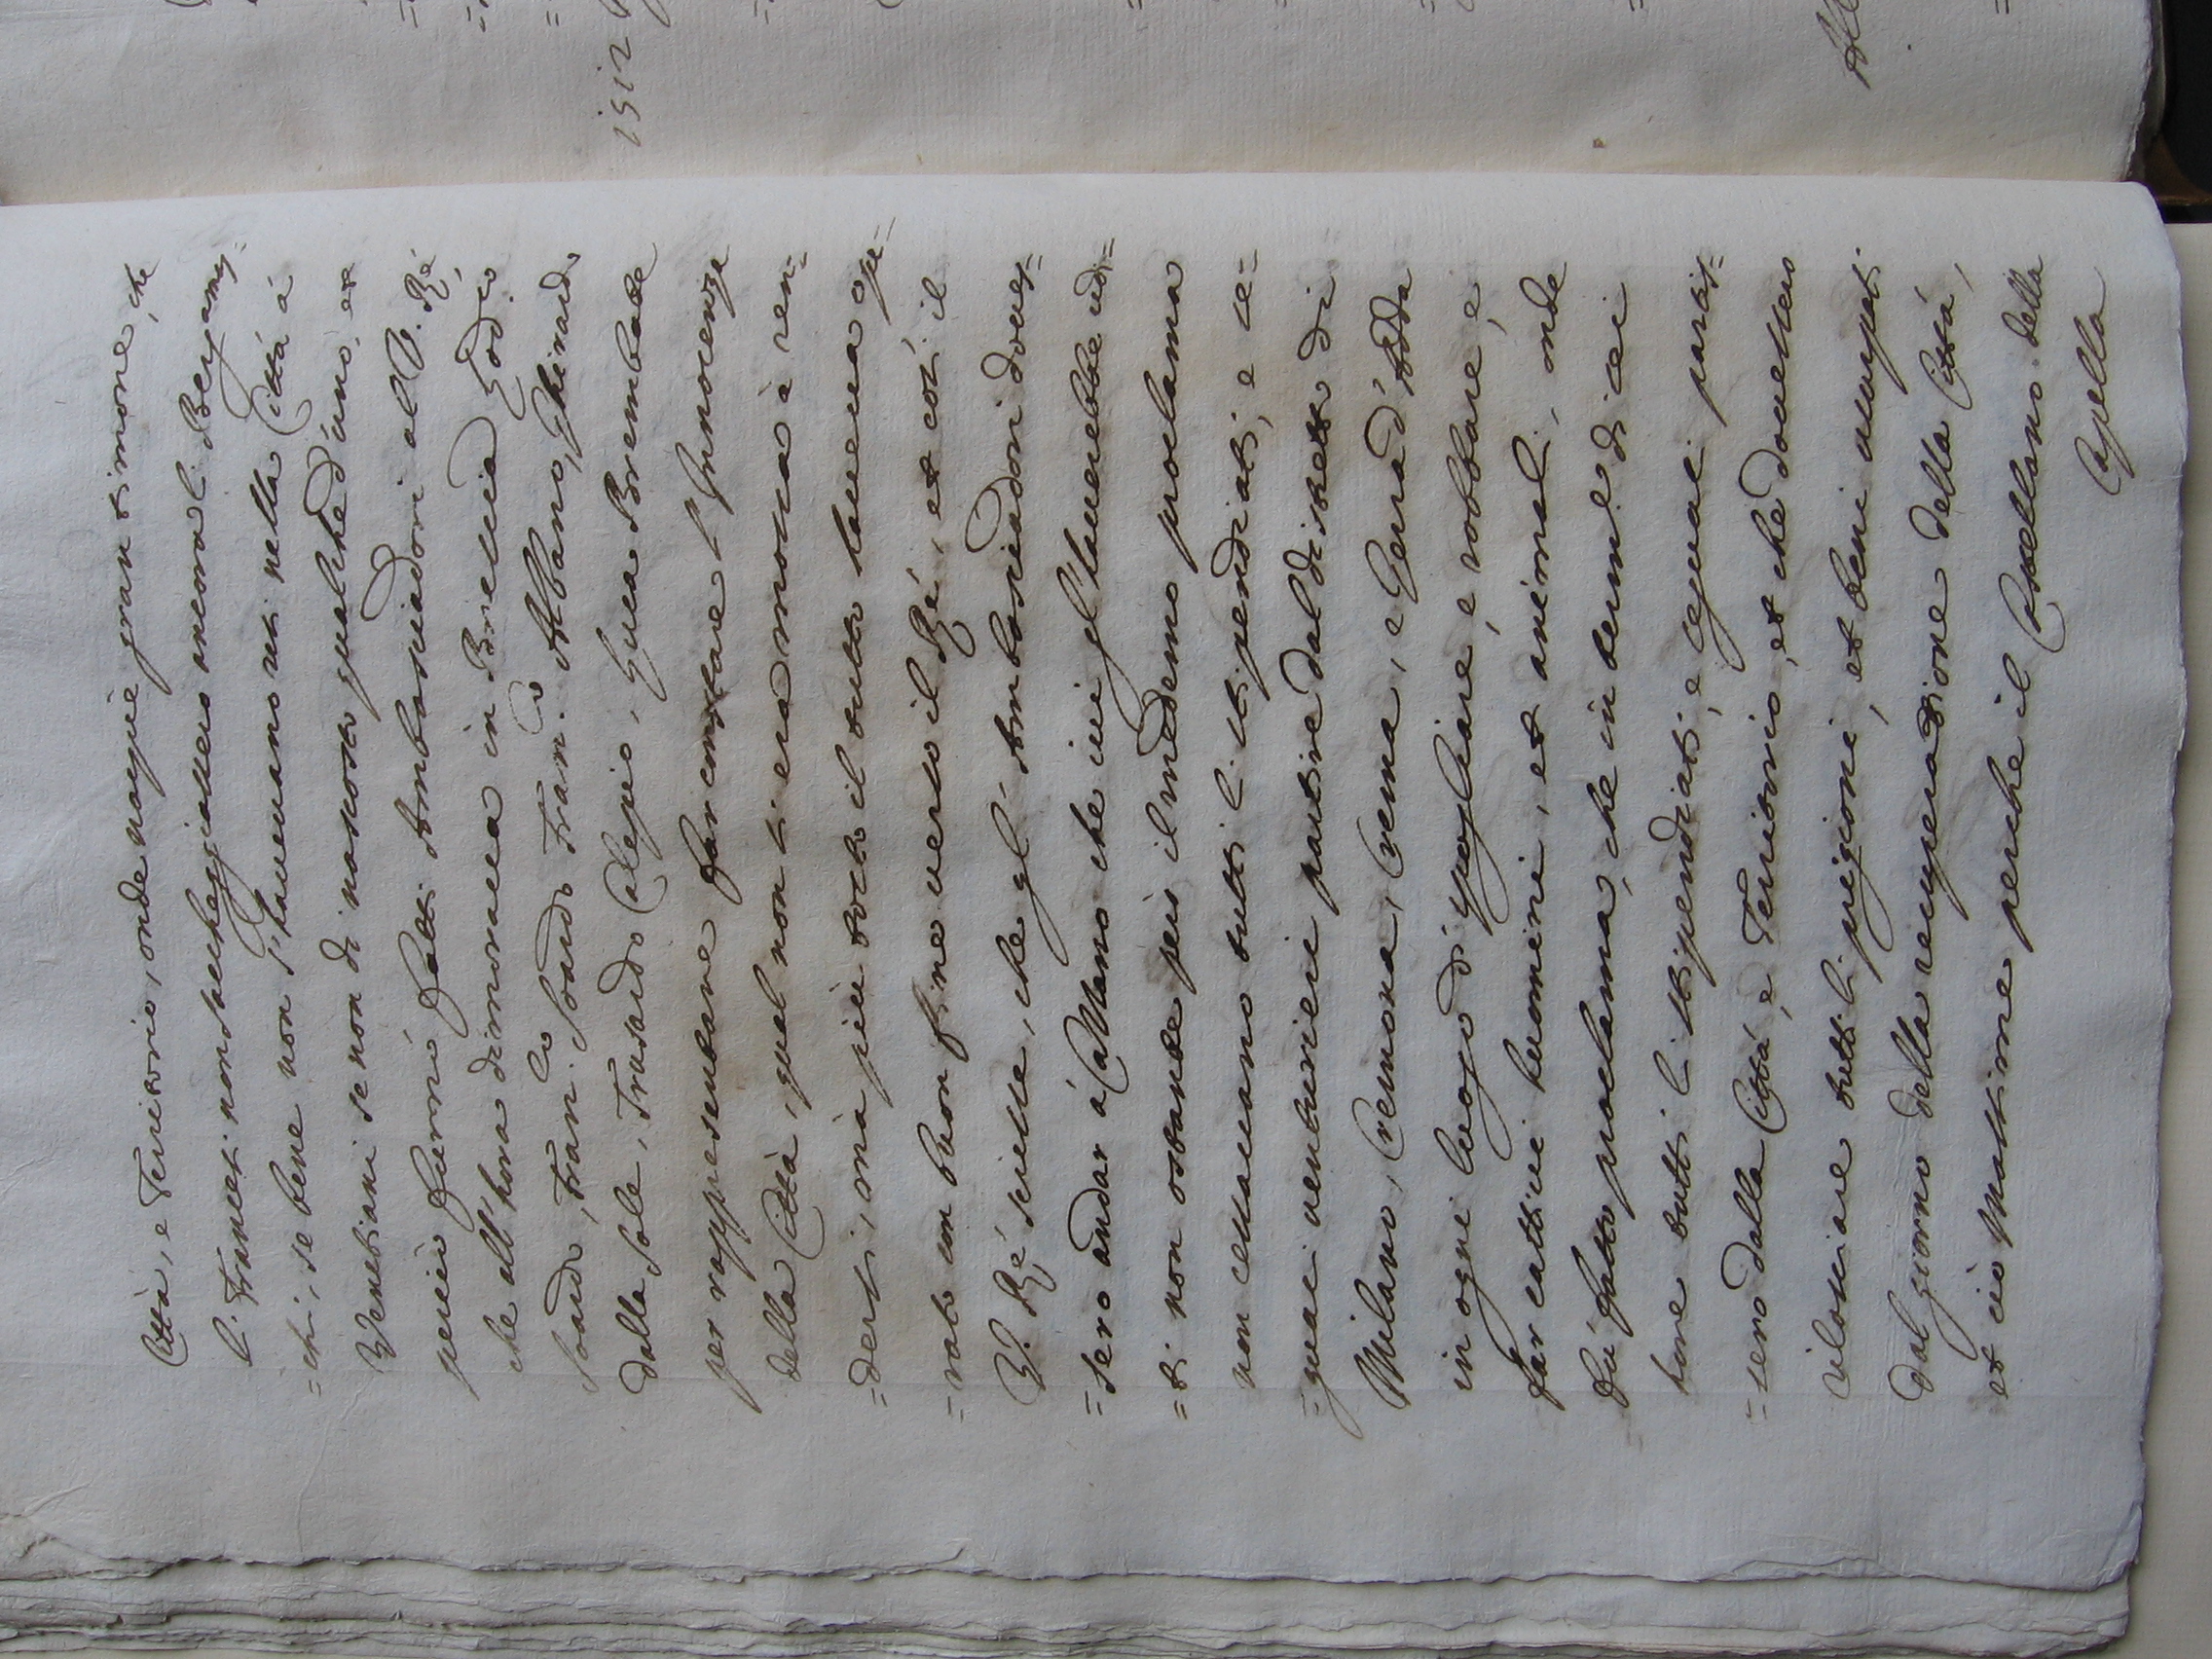 Città, e Territorio, onde nacque gran timore, che
li Francesi non sacheggiassero ancora li Bergamas=
=chi, se bene non s'haveuano uisti nella Città à
Venetiani se non di nascosto qualched'uno, et
perciò furno fatti Ambasciadori al S. Rè,
che all'hora dimoraua in Brescia Lod.co
Soardo, Fran.co Soardo Fran.co Albano, Ghirardo
dalle Sole, Trusardo Calepio, Luca Brembate
per rappresentare far constare l'Innocenza
della Città, qual non s'era mossa à ren=
=dersi, mà più tosto il tutto haueua ope=
=rato con buon fine uerso il Rè, et così il
S. Rè scrisse, che gl'Ambasciadori doues=
=sero andar à Milano che iui gl'hauerebbe udi=
=ti non ostante però il medemo proclama
non cessauano tutti li stipendiati, e se=
=guaci uenturieri partire dal distretto di
Milano, Cremona, Crema, e Gerad'Adda
in ogni luogo di spogliare, e robbare, e
far cattiui huomini, et animali, onde
fù fatto proclama, che in term.e di sei
hore tutti li stipendiati, e seguaci partis=
=sero dalla Città, e Territorio, et che douessero
rilasciare tutti li prigioni, et beni occupati
dal giorno della recuperatione della Città,
et ciò Massime perche il Castellano della
Capella
1512